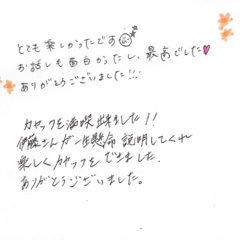 とても楽しかったです
お話しも面白かったし、最高でした♥
ありがとうございました!!!
カヤックを満喫出来ました!!
伊藤さんが一生懸命説明してくれ
楽しくカヤックをできました。
ありがとうございました。